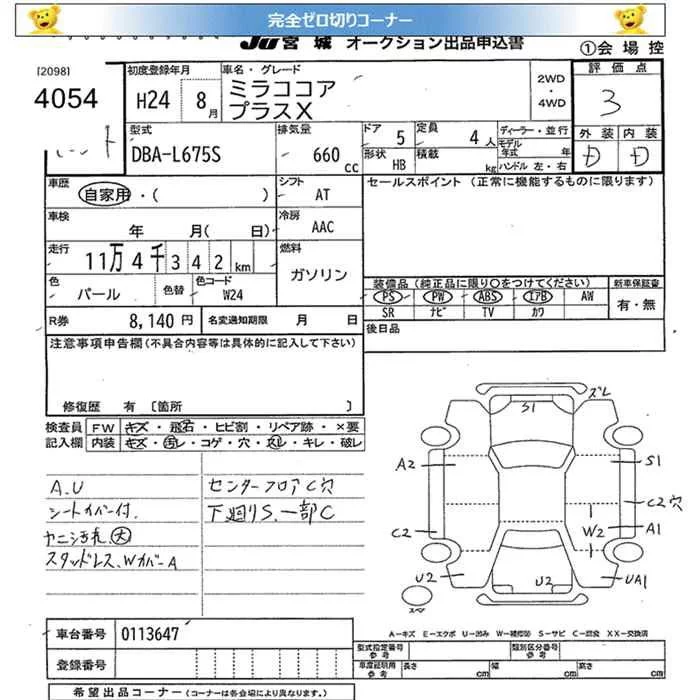 完全ゼロ切りコーナー
JU 宮城 オークション出品申込書 ①会場控
[2098]
4054
初度登録年月
H24 8月
車名・グレード
ミラココア
プラスX
2WD
・
4WD
評価点
3
外装 内装
D D
型式
DBA-L675S
排気量
660
cc
ドア 5
定員 4人
形状 HB
積載 kg
ディーラー・並行
モデル年式 年
ハンドル 左・右
車歴
自家用・( )
シフト
AT
セールスポイント (正常に機能するものに限ります)
車検
年 月( 日)
冷房
AAC
走行
11万4千342km
燃料
ガソリン
色
パール
色替
色コード
W24
装備品(純正品に限り○をつけてください)
PS PW ABS エアB AW
SR ナビ TV カワ
新車保証書
有・無
R券 8,140円
名変通知期限 月 日
後日品
注意事項申告欄(不具合内容等は具体的に記入して下さい)
修復歴 有 〔箇所 〕
検査員 FW キズ・飛石・ヒビ割・リペア跡・×要
記入欄 内装 キズ・汚レ・コゲ・穴・スレ・キレ・破レ
A.U
シートカバー付.
ヤニ汚れ 大
スタッドレス.Wカバー A
センターフロアC穴
下廻りS.一部C
ズレ
S1
A2
S1
C2穴
C2
W2
A1
U2
U2
UA1
スペア
A-キズ E-エクボ U-凹み W-補修跡 S-サビ C-腐食 XX-交換済
車台番号 0113647
登録番号
型式指定番号 参考
類別区分番号 参考
車庫証明用 参考
長さ cm
幅 cm
高さ cm
希望出品コーナー(コーナーは各会場により異なります。)